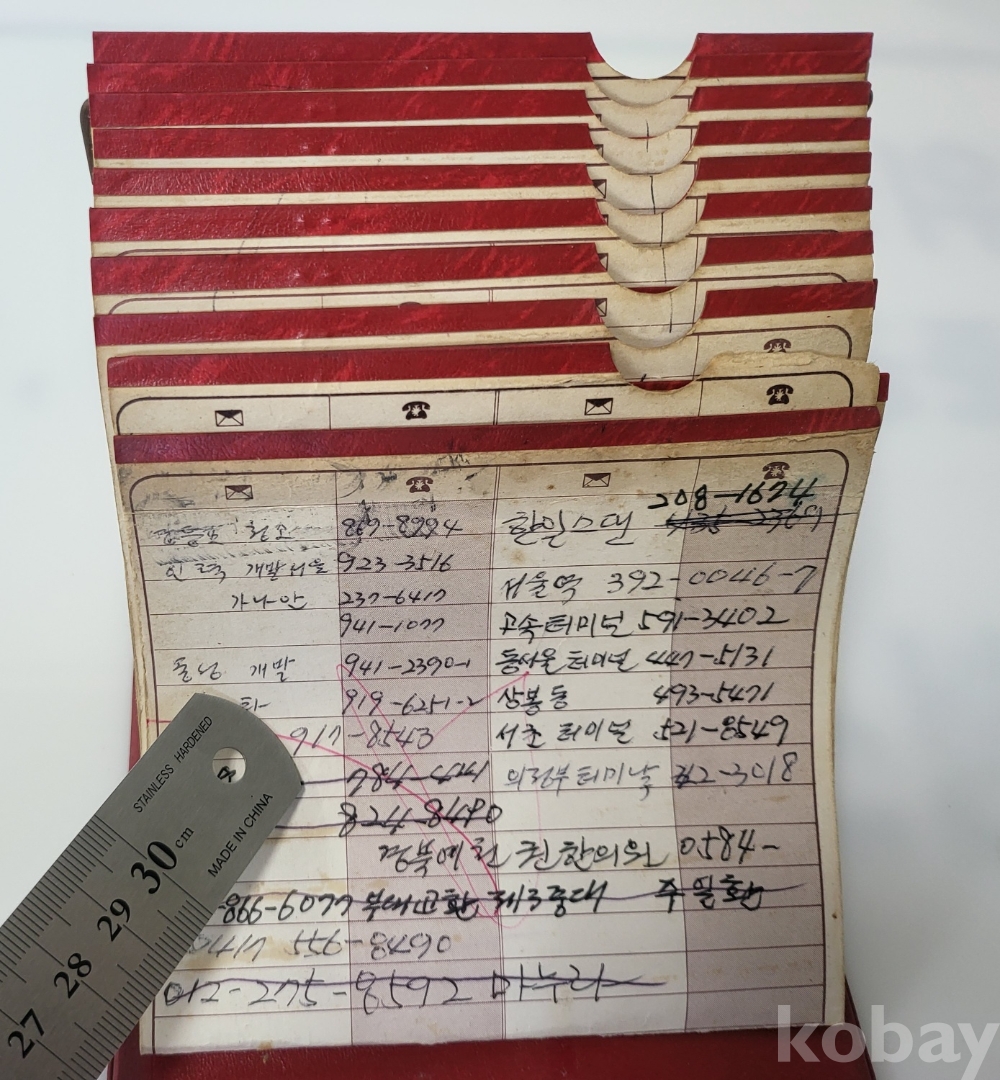 208-1624
867-8994 한일스텐
인력 개발서울 923-3516
서울역 392-0046-7
가나안 237-6417
941-1077 고속터미널 591-3402
개발 941-2390-1 동서울 터미널 447-5131
화 919-6251-2 상봉동 493-5471
917-8543 서초 터미널 521-8549
의정부 터미날 -3018
824-8480
경북예천 권한의원 0584-
-866-6077 부대교환 제3중대 주일환
0417 556-8490
012-275-8592 마누라
STAINLESS HARDENED
MADE IN CHINA
27 28 29 30 cm
kobay